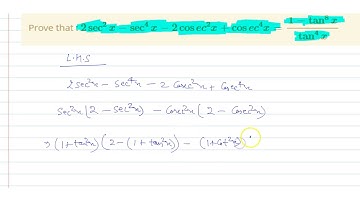 Prove that 2 sec² x − sec⁴ x − 2 cosec² x + cosec⁴ x = (1 − tan⁸ x)/(tan⁴ x)
L.H.S
2 sec²x − sec⁴x − 2 cosec²x + cosec⁴x
sec²x (2 − sec²x) − cosec²x (2 − cosec²x)
⇒ (1+tan²x)(2−(1+tan²x)) − (1+cot²x)